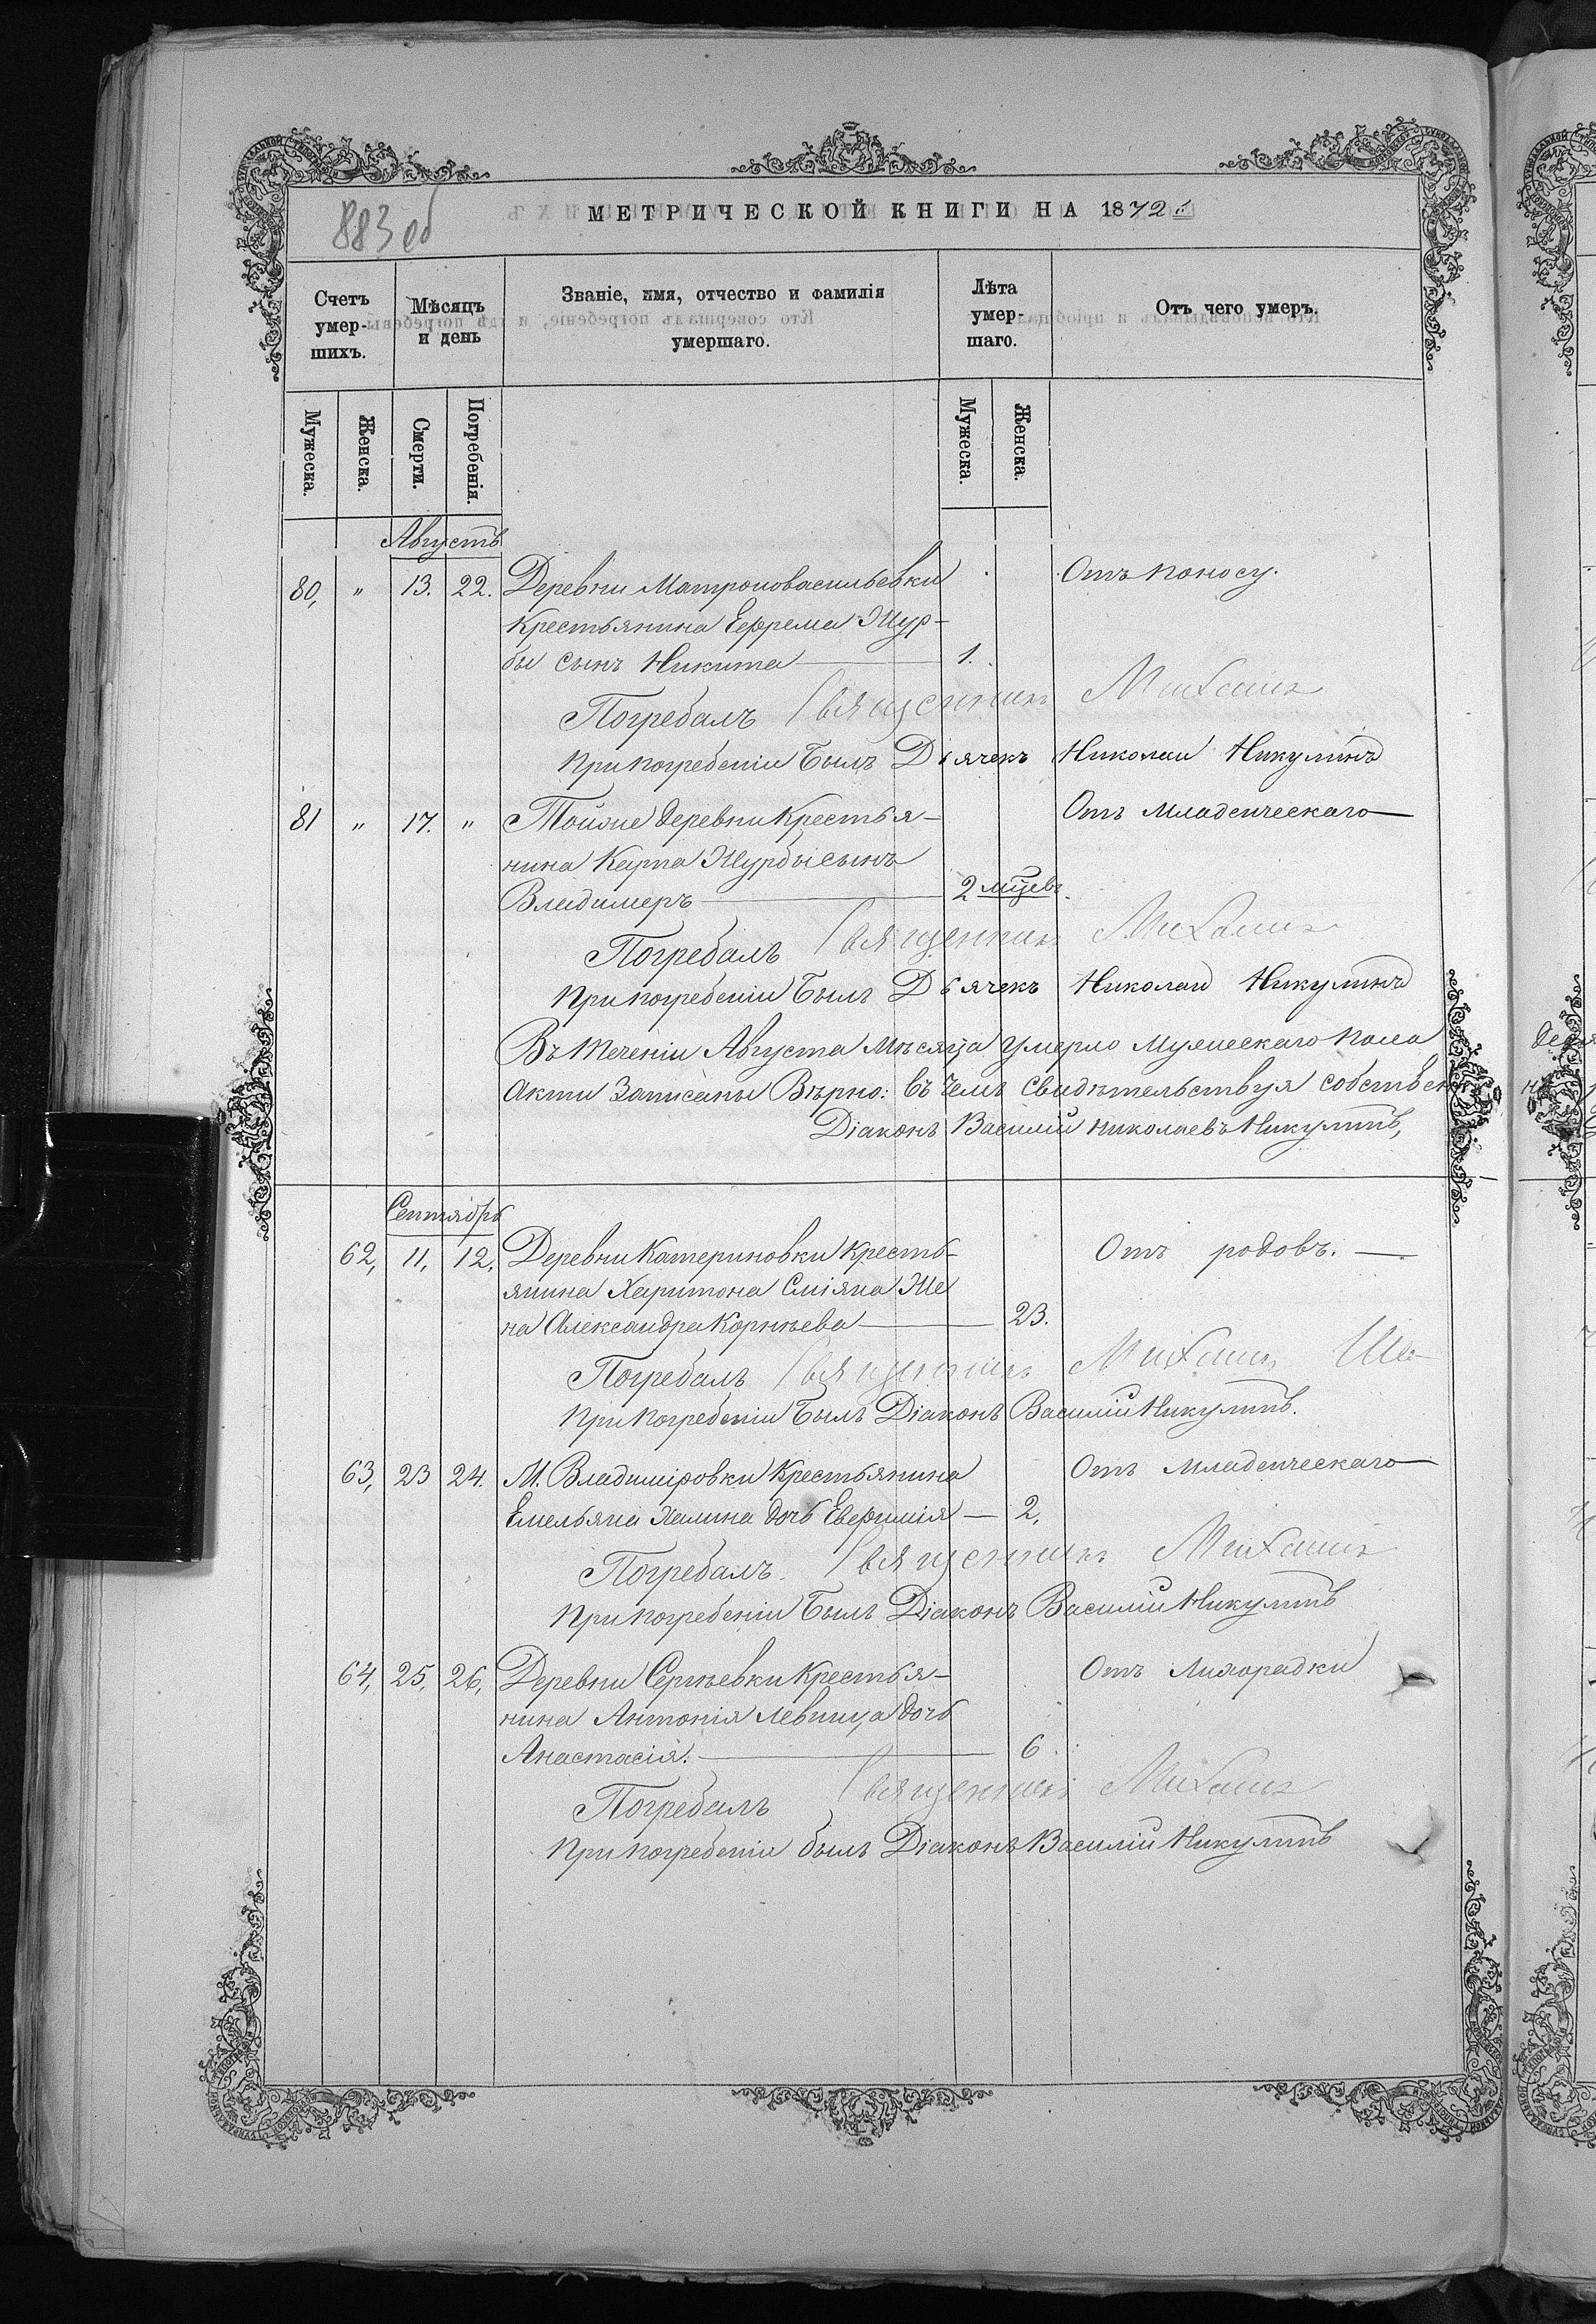 883 об
МЕТРИЧЕСКОЙ КНИГИ НА 1872 г.
Счетъ умер-шихъ.
Мѣсяцъ и день
Званіе, имя, отчество и фамилія умершаго.
Лѣта умер-шаго.
Отъ чего умеръ.
Мужеска.
Женска.
Смерти.
Погребенія.
Мужеска.
Женска.
Августъ
80, " 13. 22. Деревни Матроновасильевки Отъ поносу.
Крестьянина Ефрема Жур-
бы сынъ Никита 1.
Погребалъ Священникъ Михаилъ
При погребеніи Былъ Дьячекъ Николай Никулинъ
81 " 17. " Тойже деревни Крестья- Отъ Младенческаго
нина Карпа Журбы сынъ
Владимеръ 2 мцевъ.
Погребалъ Священникъ Михаилъ
При погребеніи Былъ Дьячекъ Николай Никулинъ
Въ Теченіи Августа Мѣсяца Умерло Мужескаго Пола
Акти Записаны Вѣрно: въ Чемъ свидѣтельствуя собствен
Діаконъ Василій Николаевъ Никулинъ,
Сентябрь
62, 11, 12, Деревни Катериновки Кресть- Отъ родовъ.
янина Харитона Сміяна Же
на Александра Корнѣева 23.
Погребалъ Священникъ Михаилъ Ше
При Погребеніи Былъ Діаконъ Василій Никулинъ.
63, 23 24. М. Владиміровки Крестьянина Отъ младенческаго
Емельяна Халина дочь Евфимія 2,
Погребалъ. Священникъ Михаилъ
При погребеніи Былъ Діаконъ Василій Никулинъ
64, 25, 26, Деревни Сергѣевки Крестья- Отъ Лихорадки
нина Антонія Левшица дочь
Анастасія. 6.
Погребалъ Священникъ Михаилъ
При погребеніи былъ Діаконъ Василій Никулинъ